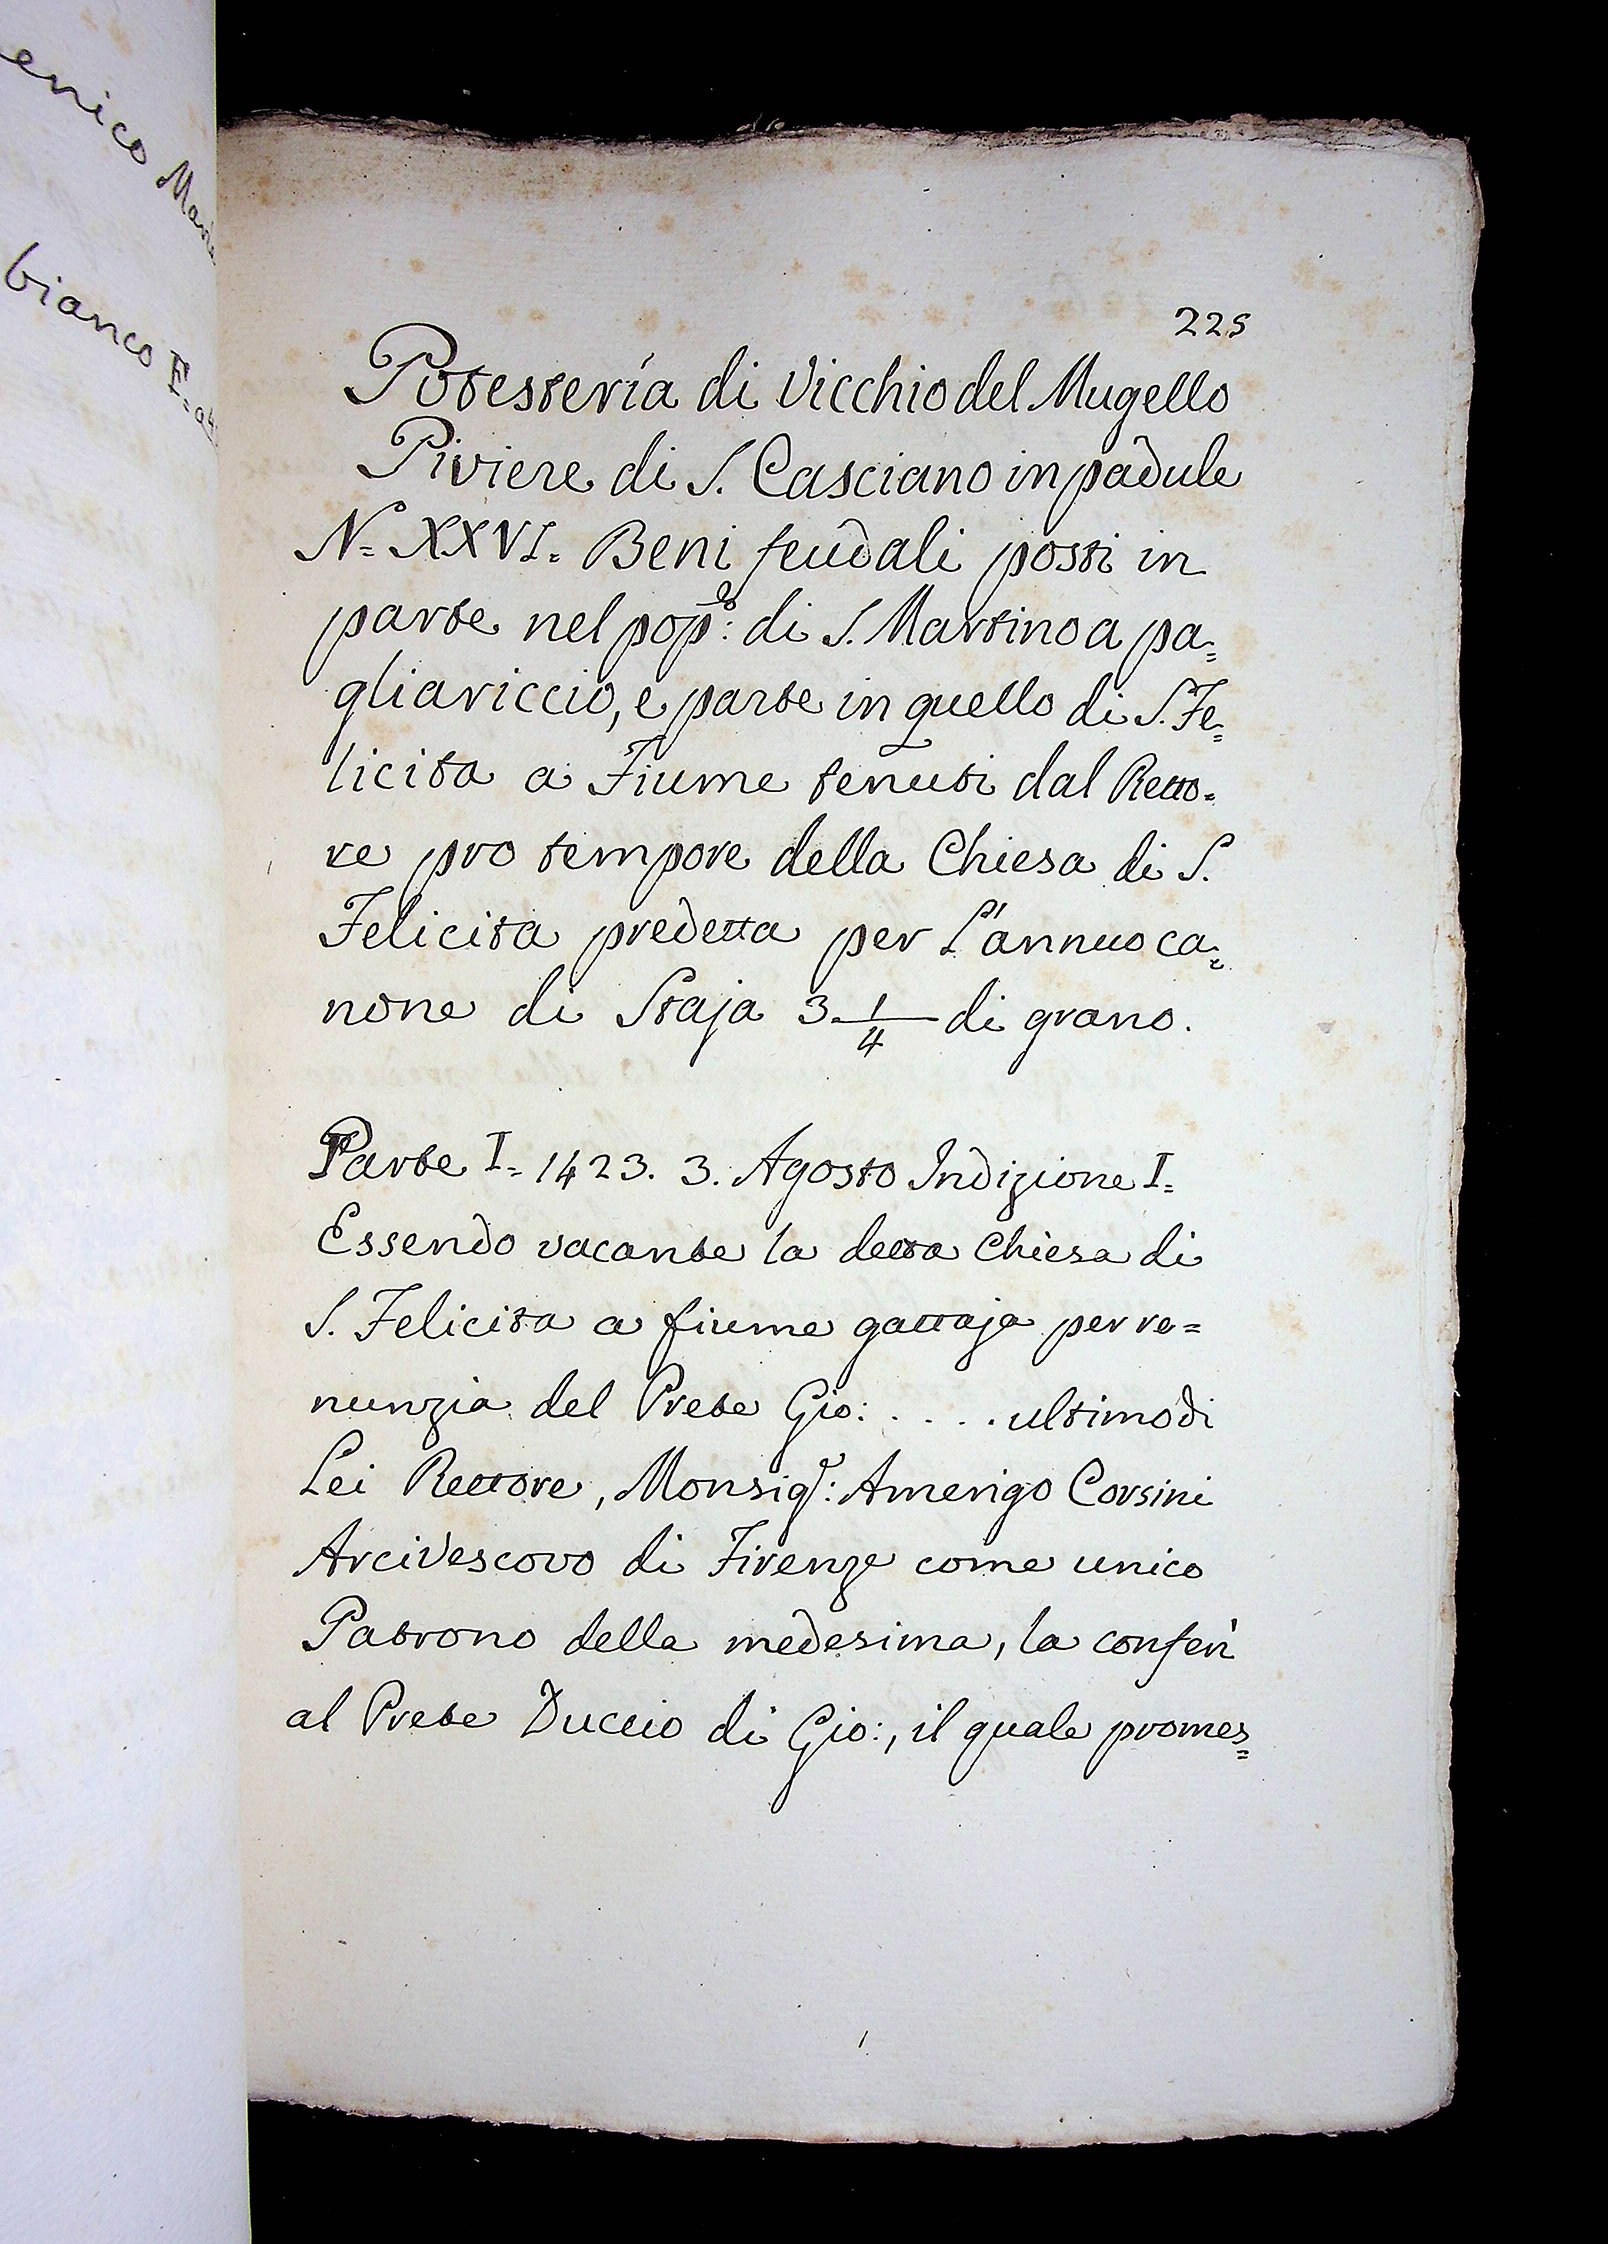 enico
bianco
225
Potesteria di Vicchio del Mugello
Piviere di S. Casciano in padule
N.= XXVI.= Beni feudali posti in
parte nel pop.o: di S. Martino a pa=
gliariccio, e parte in quello di S. Fe=
licita a Fiume tenuti dal Retto=
re pro tempore della Chiesa di S.
Felicita predetta per L'annuo ca=
none di Staja 3 1/4 di grano.
Parte I.= 1423. 3. Agosto Indizione I.=
Essendo vacante la detta Chiesa di
S. Felicita a fiume gattaja per re=
nunzia del Prete Gio: . . . . ultimo di
Lei Rettore, Monsig.r: Amerigo Corsini
Arcivescovo di Firenze come unico
Patrono della medesima, la conferì
al Prete Duccio di Gio:, il quale promes=